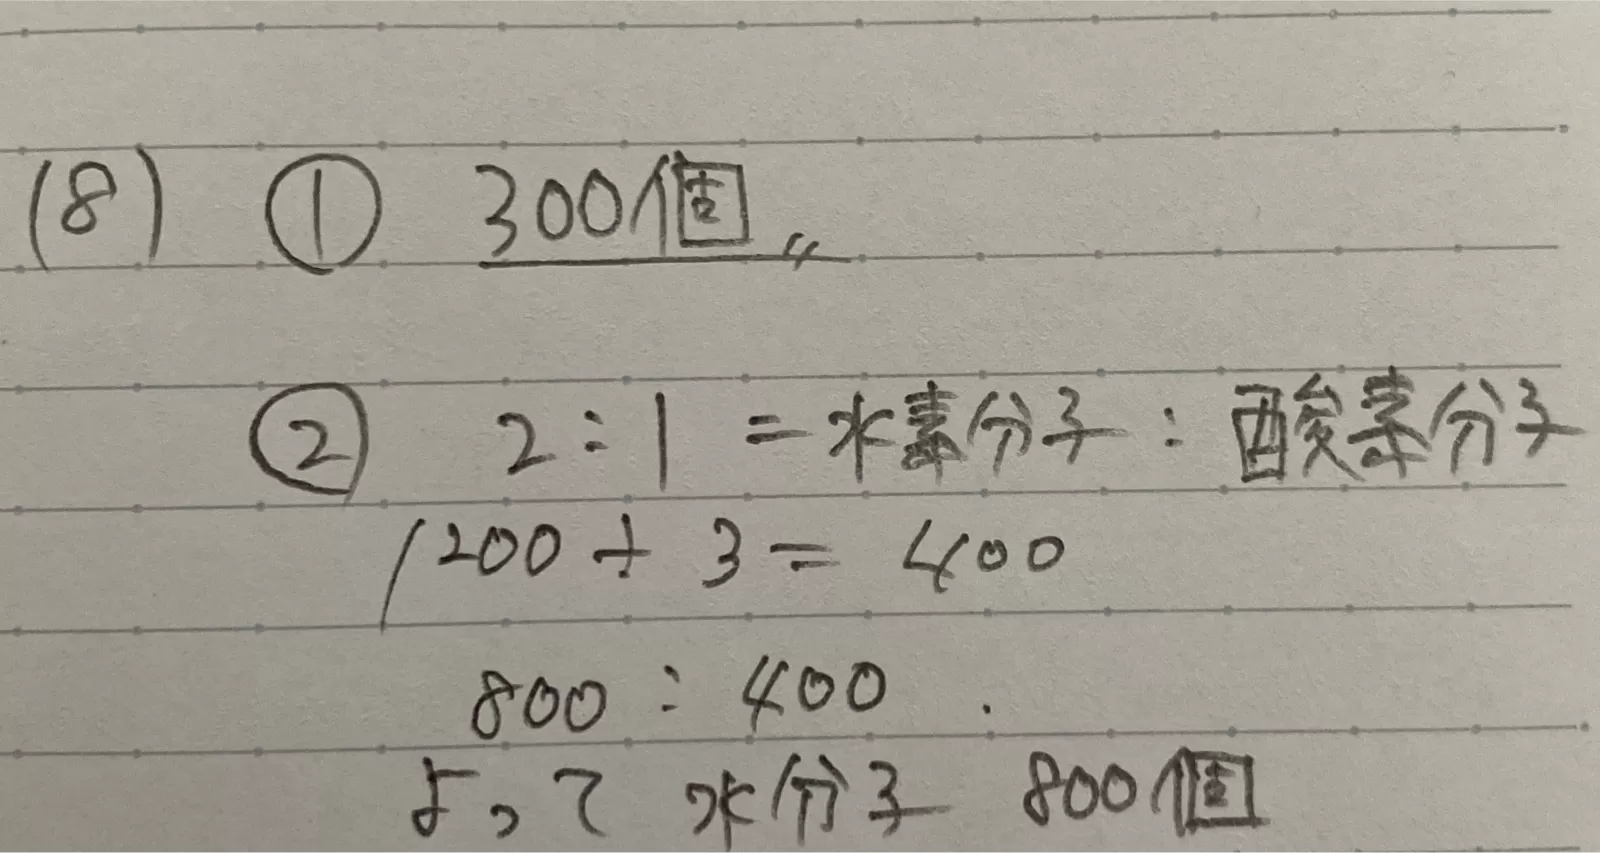 (8) ① 300個〃
② 2:1 = 水素分子:酸素分子
1200÷3= 400
800:400.
よって 水分子 800個